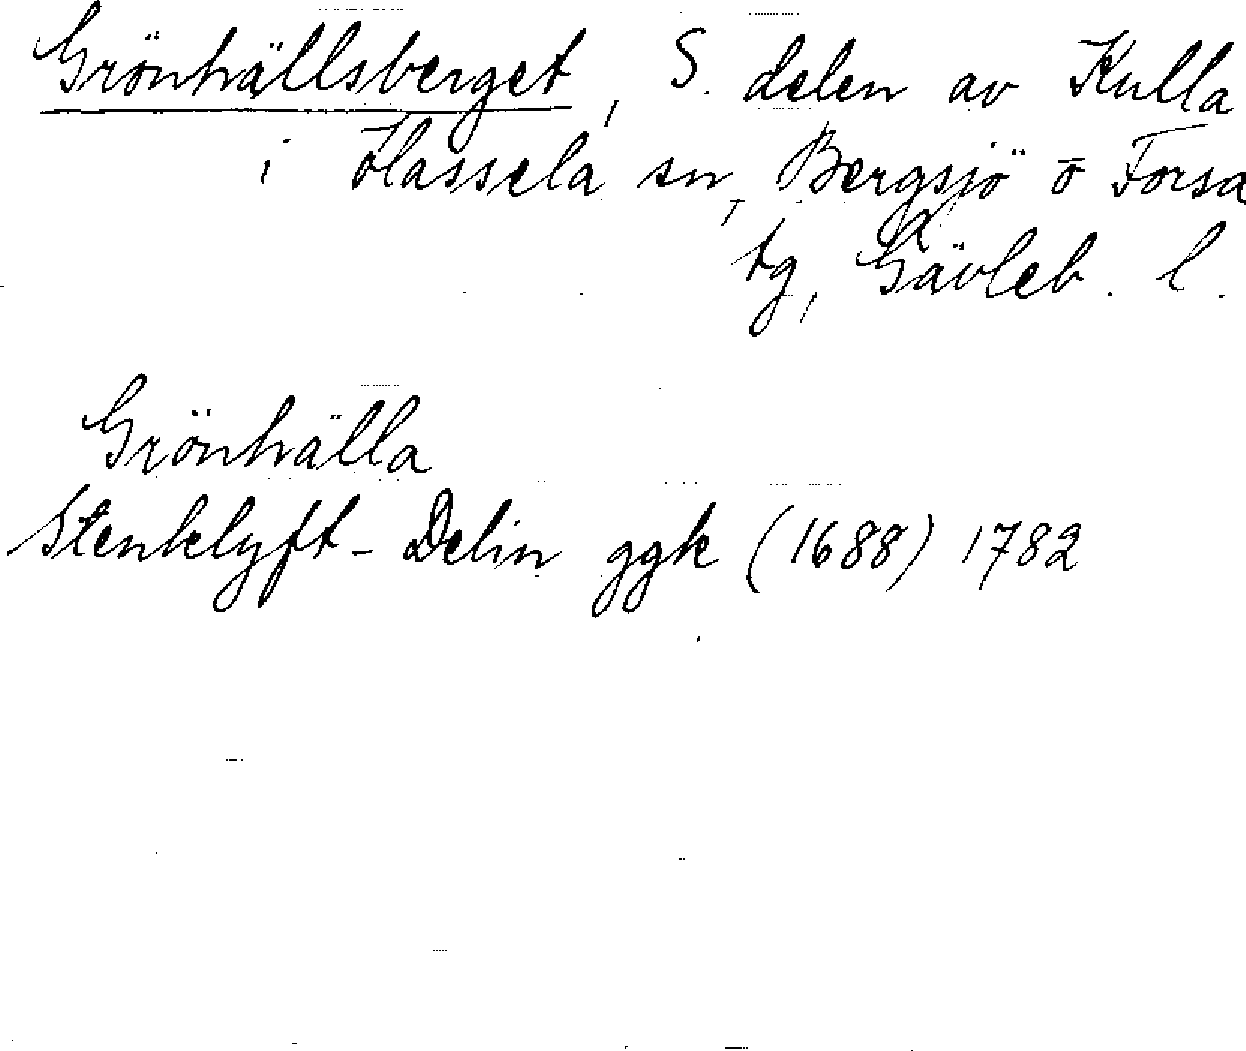 Grönhällsberget, S. delen av Kulla
i Hassela sn, Bergsjö o Forsa
tg, Gävleb. l.
Grönhälla
Stenklyft - Delin ggk (1688) 1782